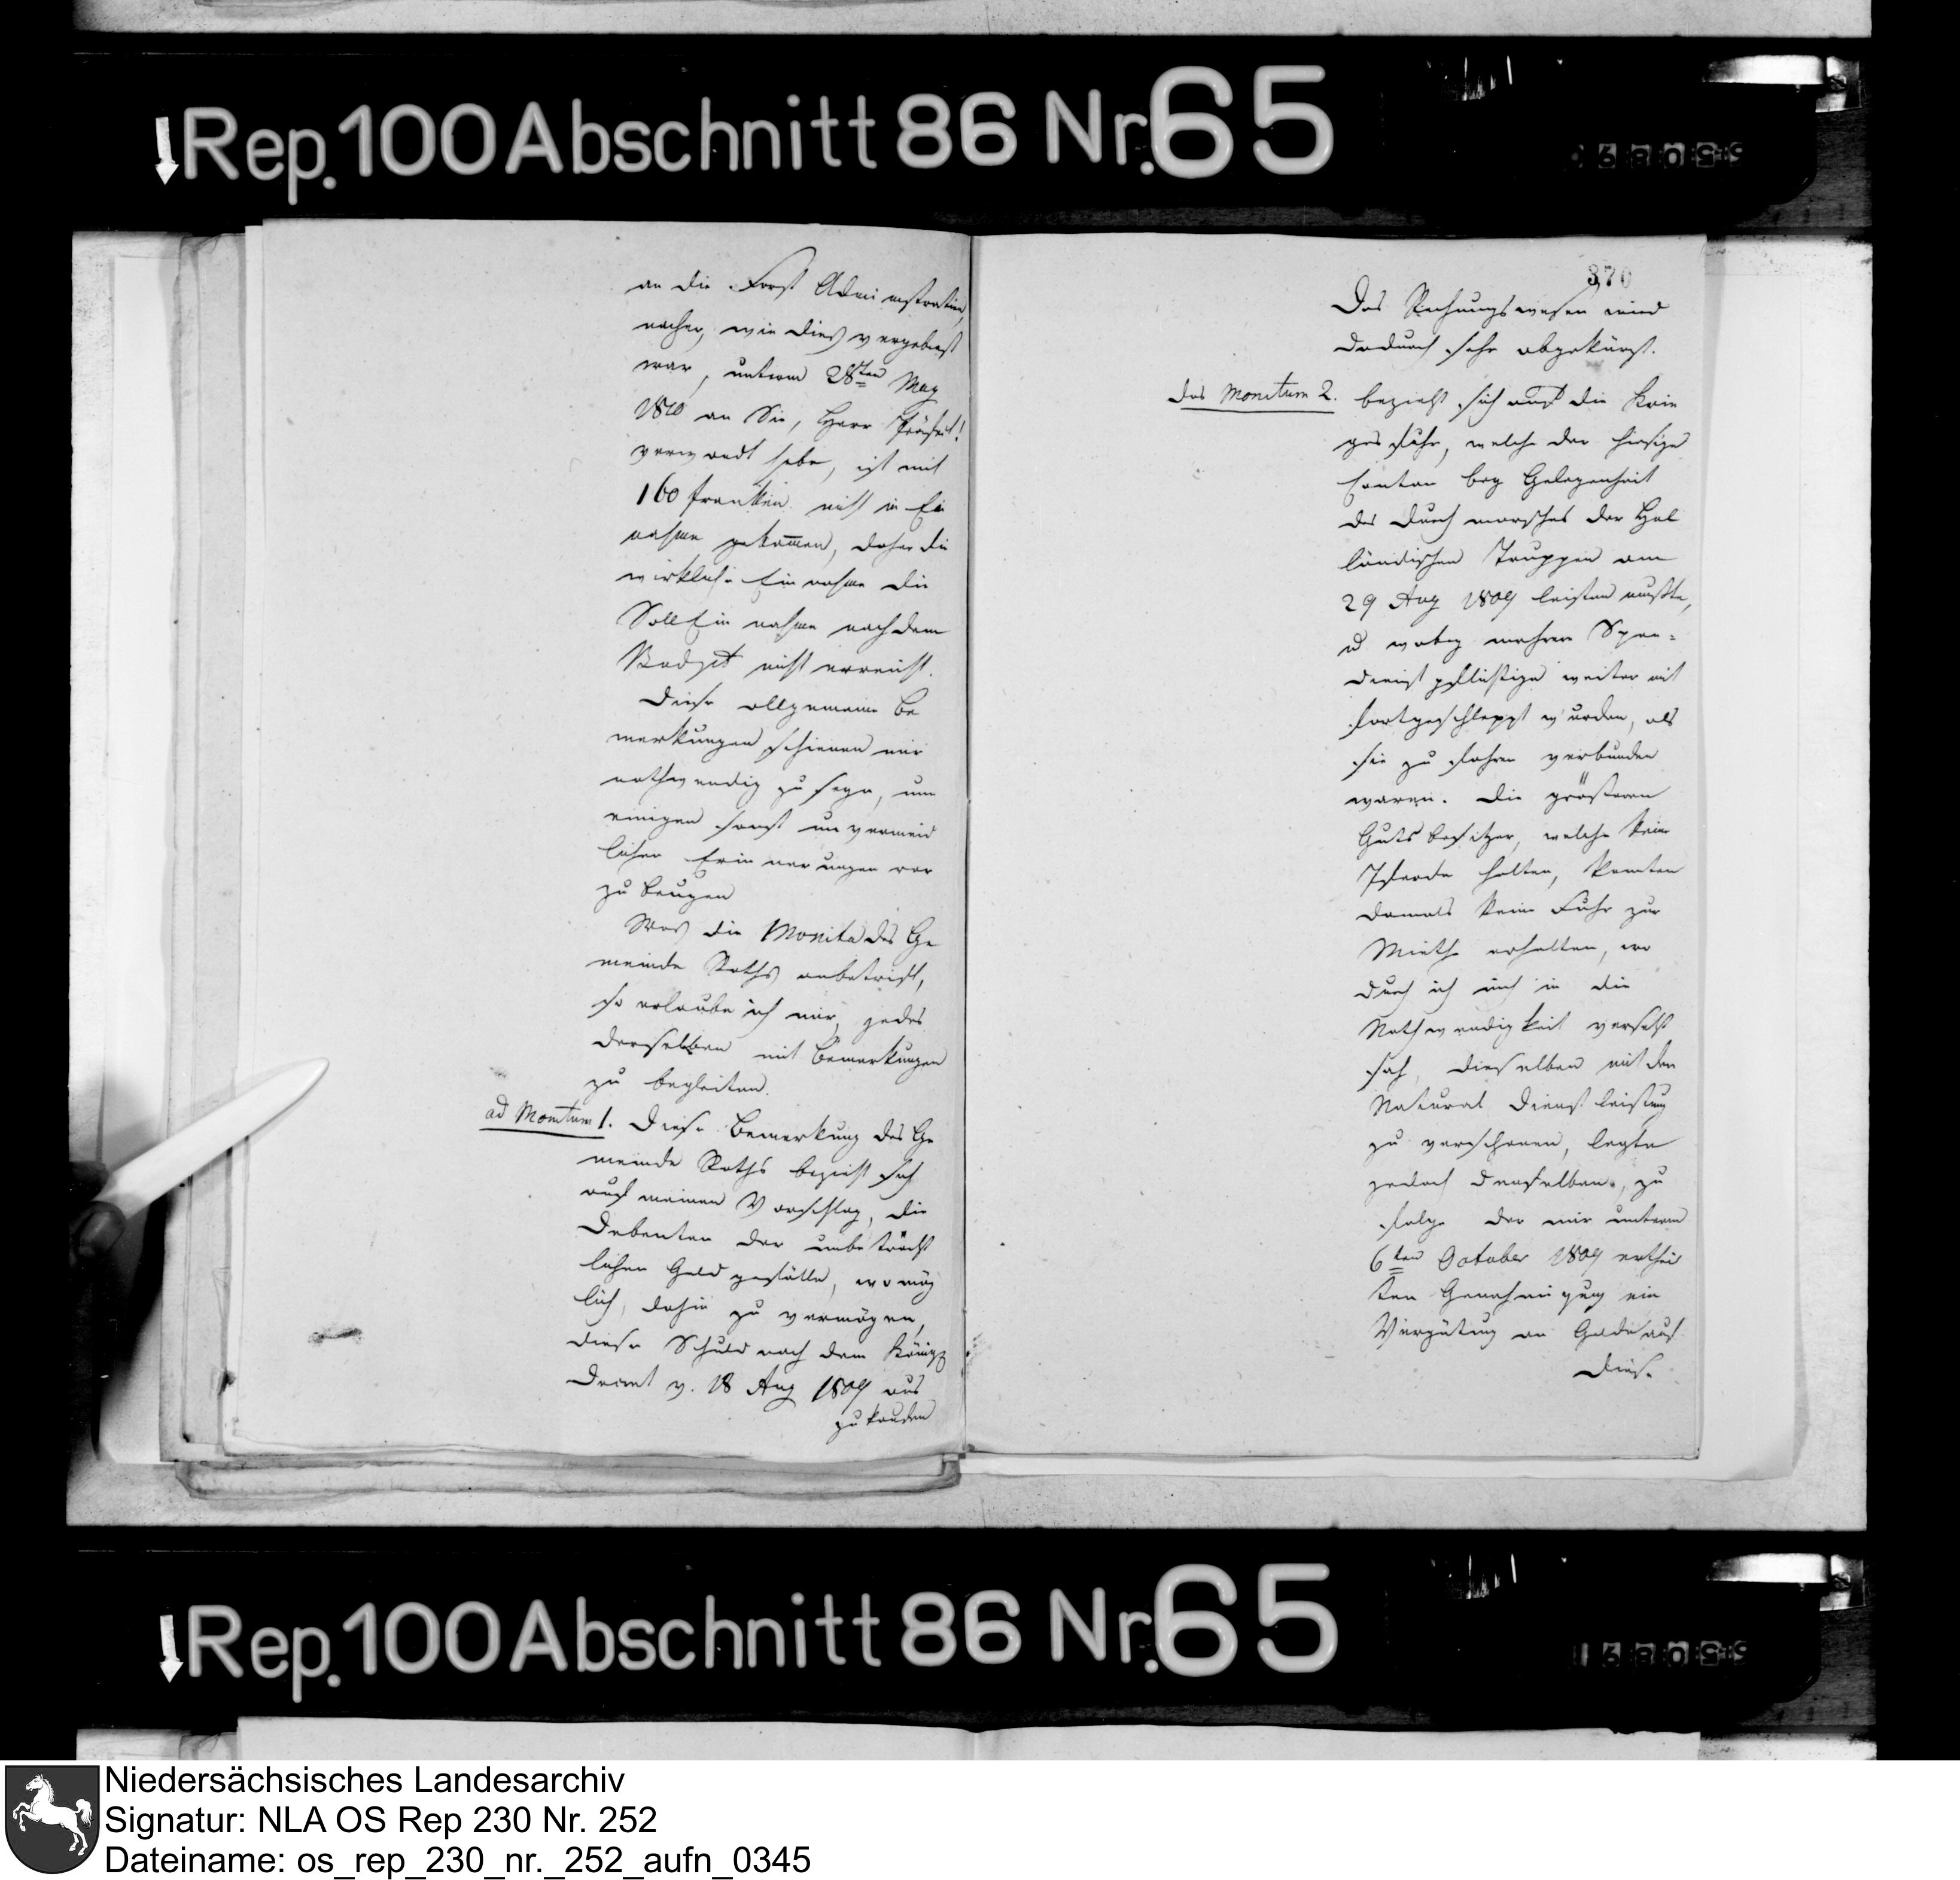 Rep. 100 Abschnitt 86 Nr. 65
an die Forst Administration,
nacher, wie dies vergebens
war, unterm 28ten May
1810 an Sie, Herr Präfect!
verwandt habe, ist mit
160 franken nicht in Ein
nahme gekommen, daher die
wirkliche Einnahme die
Soll Einnahme nach dem
Budget nicht erreicht.
Diese allgemeine Be
merkungen schienen mir
nothwendig zu seyn, um
einigen sonst unvermeid
lichen Erinnerungen vor
zu beugen
Was die Monita des Ge
meinde Raths anbetrift,
so erlaube ich mir, jedes
derselben mit Bemerkungen
zu begleiten.
ad Monitum 1. Diese Bemerkung des Ge
meinde Raths bezieht sich
auf meinen Vorschlag, die
Debenten der unbeträcht
lichen Geld gefälle, wo mög
lich, dahin zu vermögen,
diese Schuld nach dem Königl
Decret v. 18 Aug 1809 aus
zu kaufen
370
Das Rechnungswesen wird
dadurch sehr abgekürzt.
das Monitum 2. bezieht sich auf die Krie
ges fuhr, welche der hiesige
Canton bey Gelegenheit
des Durchmarsches der Hol
ländischen Truppen am
29 Aug 1809 leisten mußte,
u wobey mehrere Span-
dienst pflichtige weiter mit
fortgeschleppt wurden, als
sie zu fahren verbunden
waren. Die größeren
Gutsbesitzer, welche keine
Pferde halten, konnten
damals keine Fuhr zur
Miethe erhalten, wo
durch ich mich in die
Nothwendigkeit versetzt
sah, dieselben mit der
Natural Dienstleistung
zu verschonen, legte
jedoch denselben, zu
folge der mir unterm
6ten October 1809 ertheil
ten Genehmigung eine
Vergütung an Gelde auf
Diese
Rep. 100 Abschnitt 86 Nr. 65
Niedersächsisches Landesarchiv
Signatur: NLA OS Rep 230 Nr. 252
Dateiname: os_rep_230_nr._252_aufn_0345